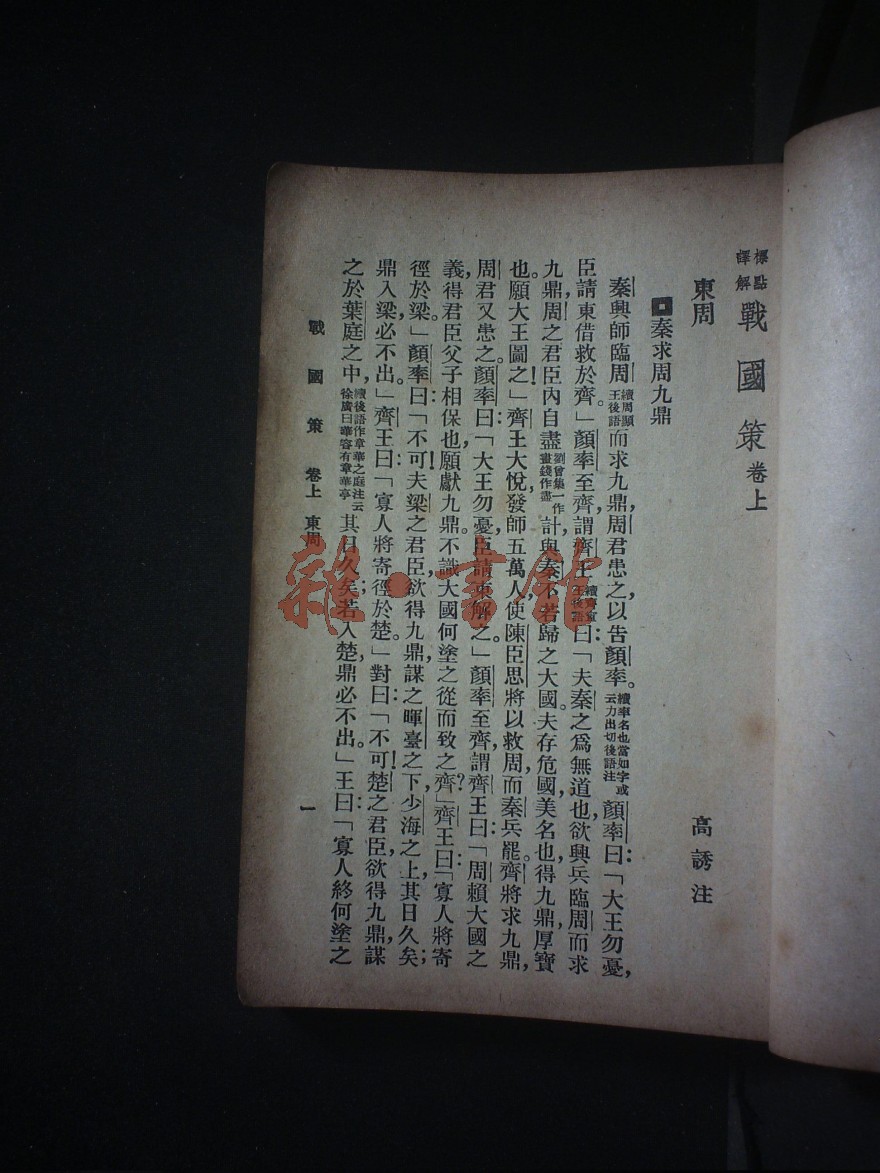 標點譯解 戰國策 卷上
東周 高誘注
秦求周九鼎
秦興師臨周續周顯王後語而求九鼎,周君患之,以告顏率。續率名也當如字或云力出切後語注顏率曰:「大王勿憂,
臣請東借救於齊。」顏率至齊,謂齊王續齊宣王後語曰:「夫秦之爲無道也,欲興兵臨周而求
九鼎,周之君臣內自盡劉曾集一作畫錢作盡計,與秦不若歸之大國。夫存危國,美名也,得九鼎,厚寶
也。願大王圖之!」齊王大悅,發師五萬人,使陳臣思將以救周,而秦兵罷。齊將求九鼎,
周君又患之。顏率曰:「大王勿憂,臣請東解之。」顏率至齊,謂齊王曰:「周賴大國之
義,得君臣父子相保也,願獻九鼎。不識大國何塗之從而致之齊?」齊王曰:「寡人將寄
徑於梁。」顏率曰:「不可!夫梁之君臣,欲得九鼎,謀之暉臺之下,少海之上,其日久矣;
鼎入梁,必不出。」齊王曰:「寡人將寄徑於楚。」對曰:「不可!楚之君臣欲得九鼎,謀
之於葉庭之中,續後語作章華之庭注云徐廣曰華容有章華亭其日久矣;若入楚,鼎必不出。」王曰:「寡人終何塗之
戰國策 卷上 東周 一
雜·書館